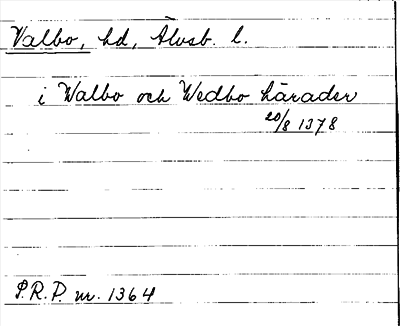 Valbo, hd, Älvsb. l.
i Walbo och Wedbo härader
20/8 1378
P.R.P. nr. 1364